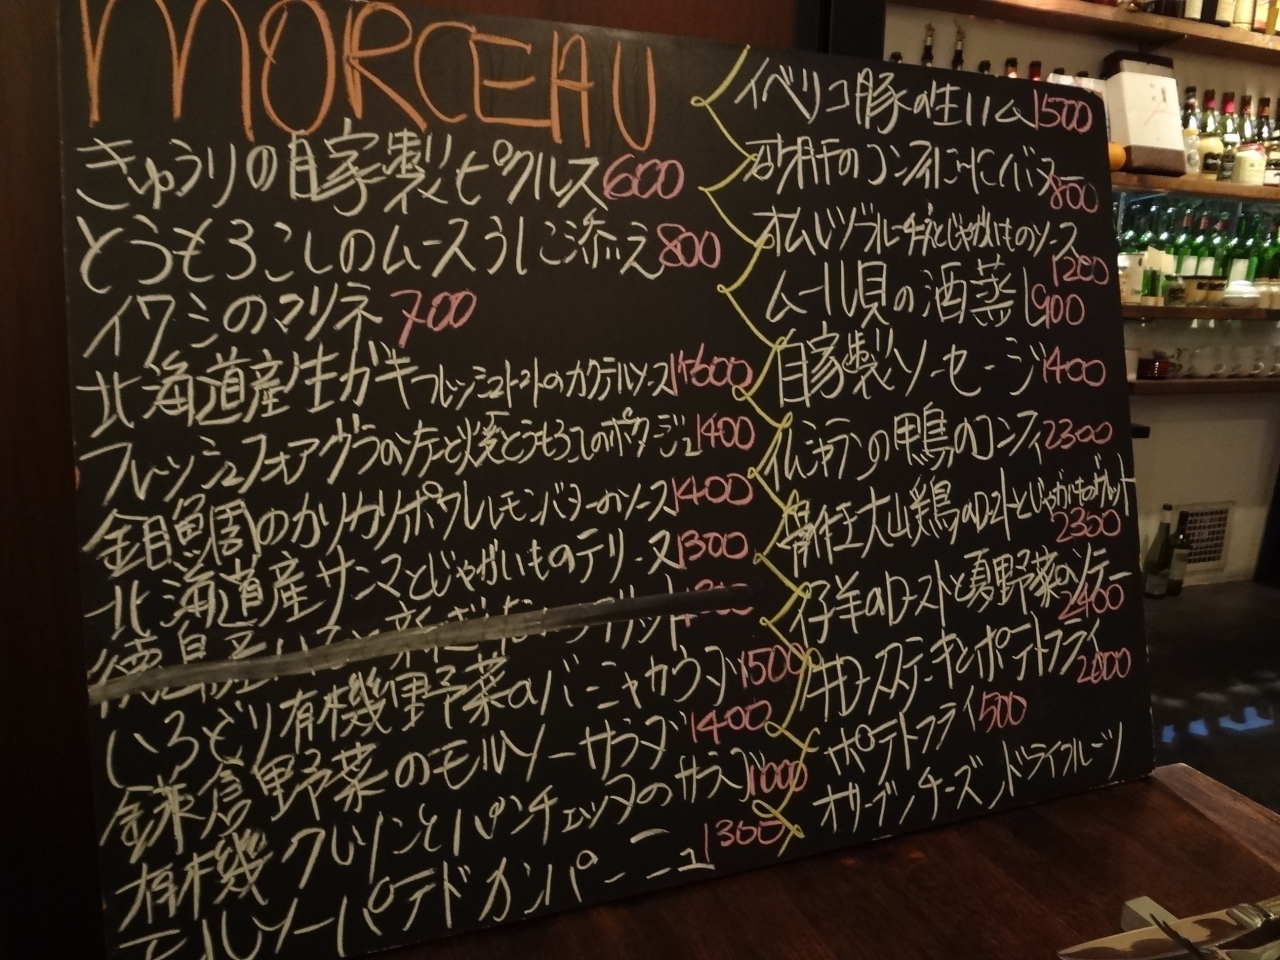 MORCEAU
きゅうりの自家製ピクルス 600
とうもろこしのムースうに添え 800
イワシのマリネ 700
北海道産生ガキ フレッシュトマトのカクテルソース 1600
フレッシュフォアグラのソテーと焼とうもろこしのポタージュ 1400
金目鯛のカリカリポワレレモンバターのソース 1400
北海道産サンマとじゃがいものテリーヌ 1300
いろどり有機野菜のバーニャカウダ 1500
鎌倉野菜のモルソーサラダ 1400
有機クレソンとパンチェッタのサラダ 1000
モルソーパテドカンパーニュ 1300
イベリコ豚の生ハム 1500
砂肝のコンフィにんにくバター 800
オムレツブルーチーズとじゃがいものソース 1200
ムール貝の酒蒸し 900
自家製ソーセージ 1400
仏シャラン の鴨のコンフィ 2300
骨付 大山鶏のローストとじゃがいものガレット 2300
仔羊のローストと夏野菜のソテー 2400
牛ロースステーキとポテトフライ 2800
ポテトフライ 500
オリーブ チーズ ドライフルーツ